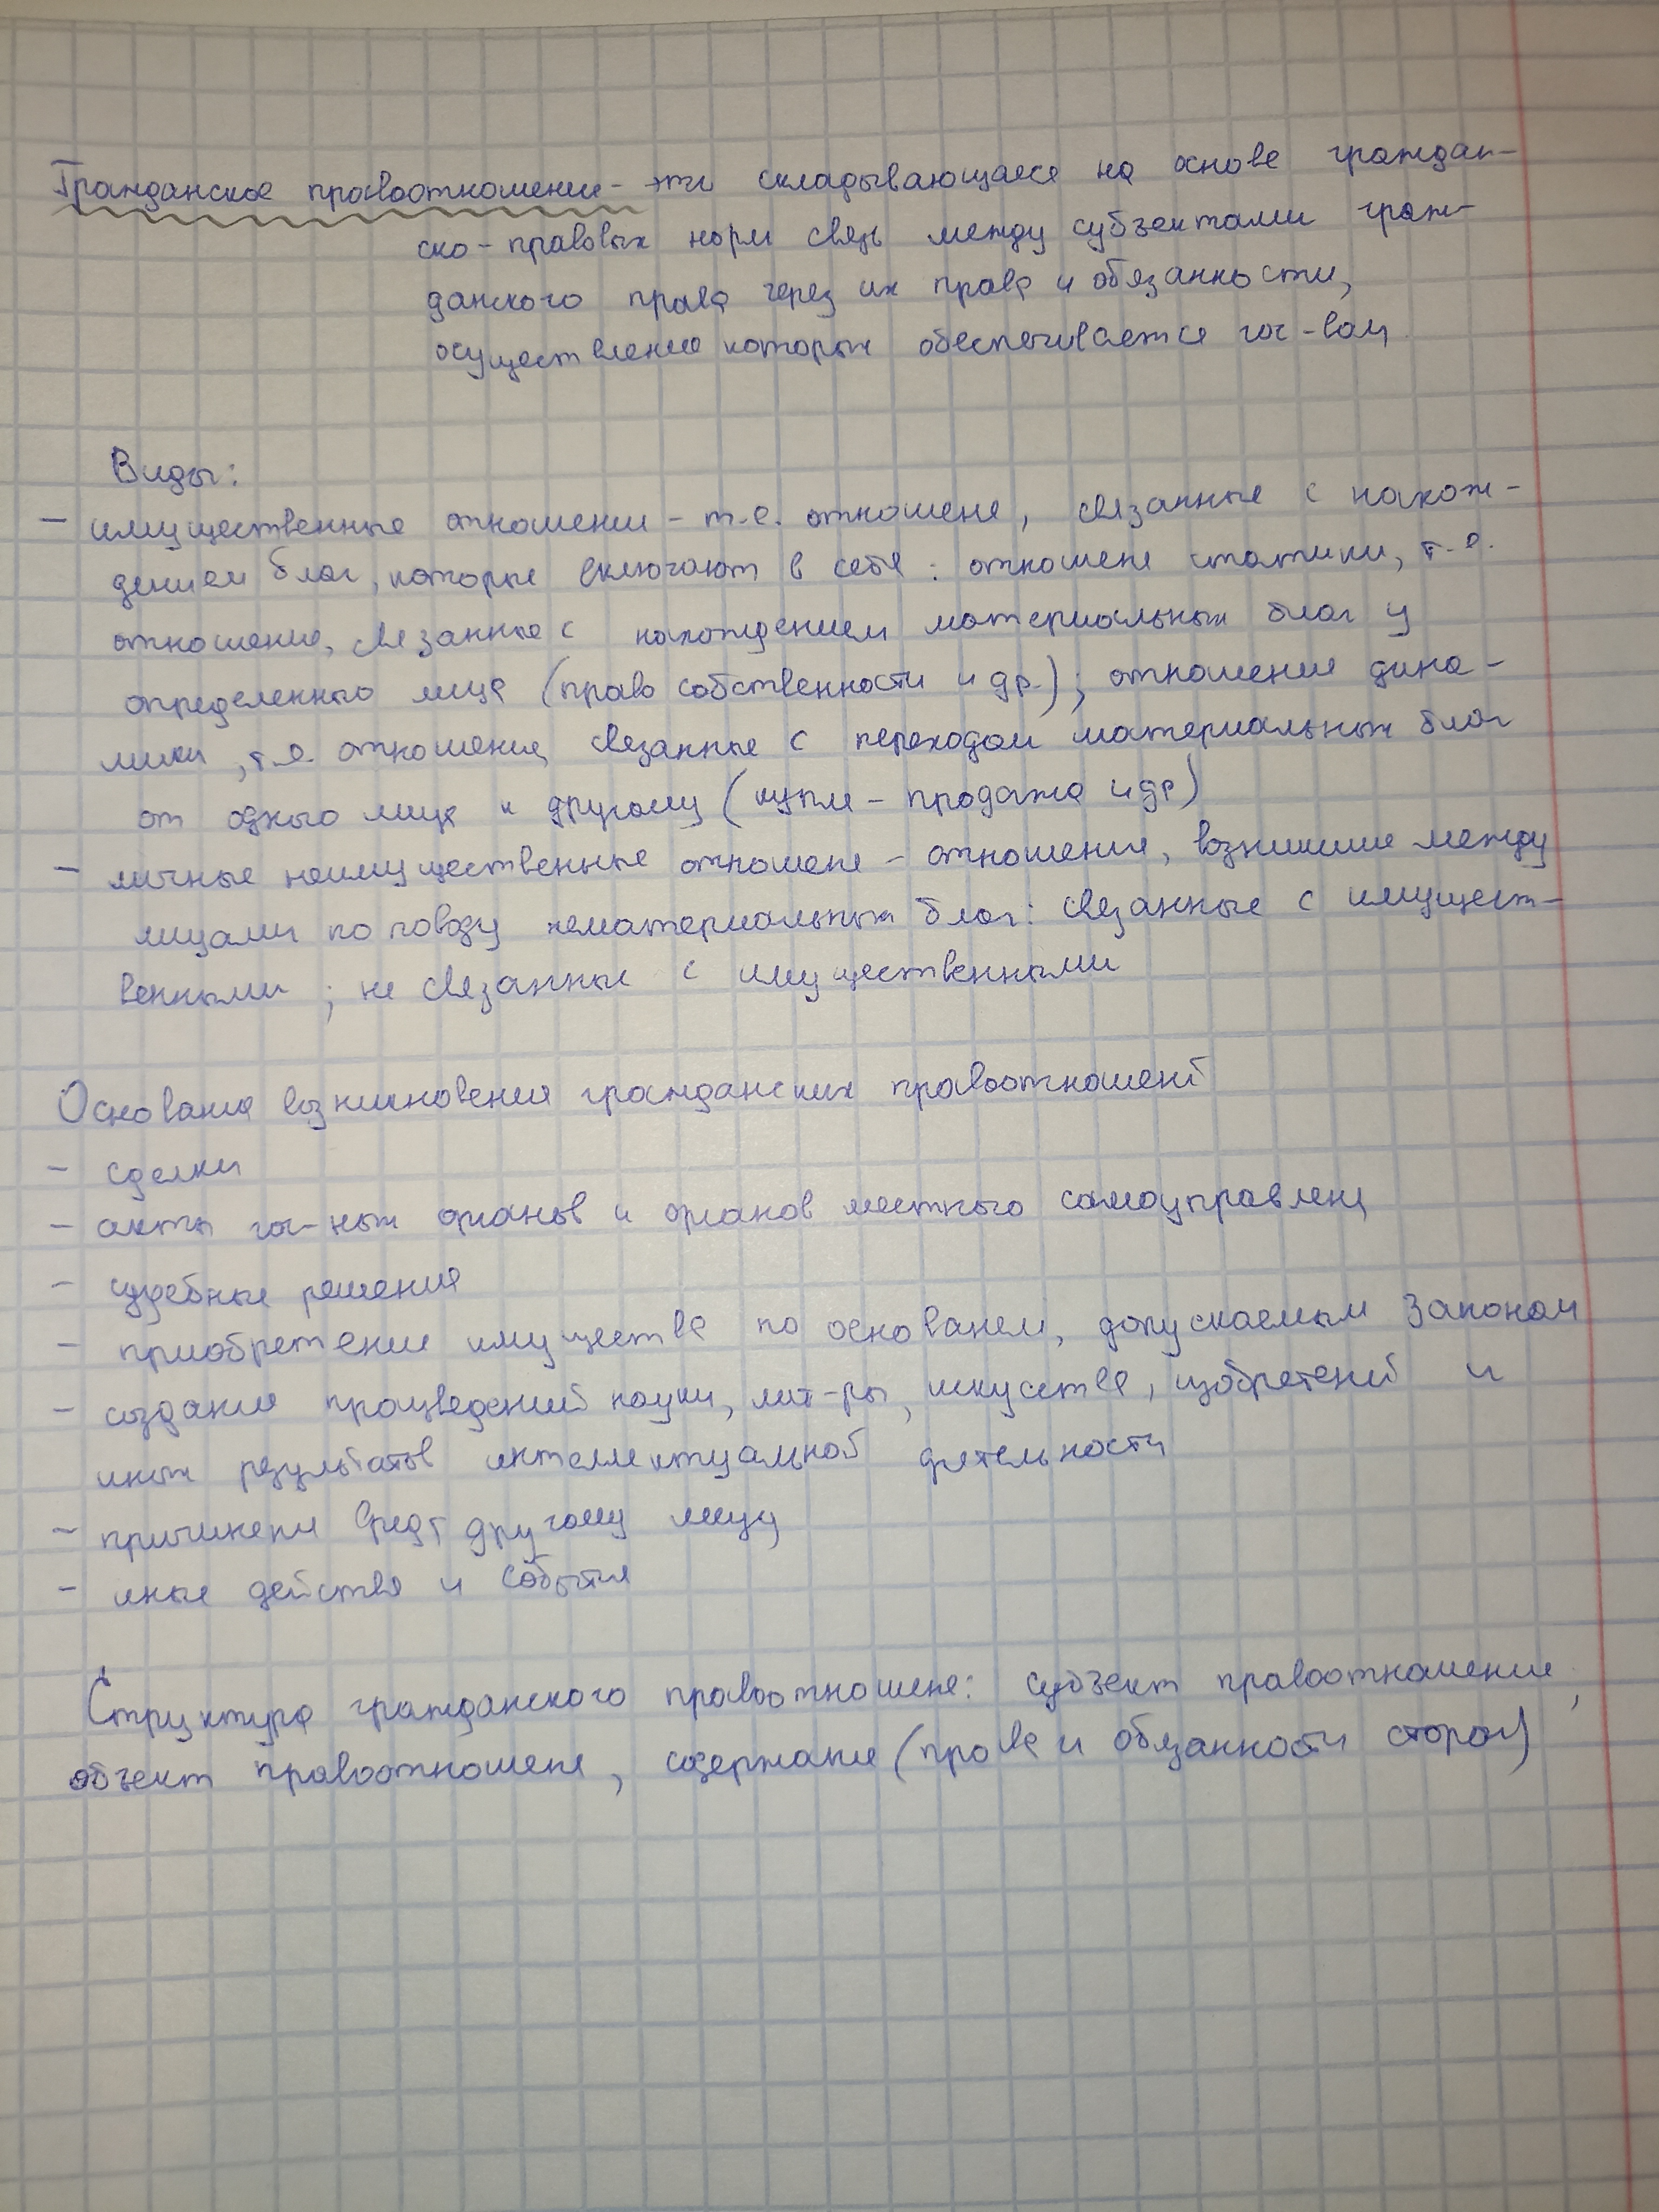 Гражданское правоотношение - это складывающаеся на основе граждан-
ско-правовых норм связь между субъектами граж-
данского права через их права и обязанности,
осуществление которых обеспечивается гос-вом
Виды:
- имущественные отношении - т.е. отношеня, связанные с нахож-
дением благ, которые включают в себя: отношене статики, т.е.
отношение, связанные с нахождением материальных благ у
определенного лица (право собственности и др.); отношения дина-
мики, т.е. отношения, связанные с переходом материальных благ
от одного лица к другому (купля-продажа и др)
- личные неимущественные отношеня - отношения, возникшие между
лицами по поводу нематериальных благ: связанные с имущест-
венными; не связанные с имущественными
Основания возникновения гражданских правоотношений
- сделки
- акты гос-ных органов и органов местного самоуправлени
- судебные решения
- приобретение имущества по основанем, допускаемым законом
- создание произведений науки, лит-ры, искуства, изобретений и
иных результатов интеллектуальной деятельности
- причинени вреда другому лицу
- иные действя и события
Структура гражданского правоотношеня: субъект правоотношение,
объект правоотношеня, содержание (права и обязанности сторон)